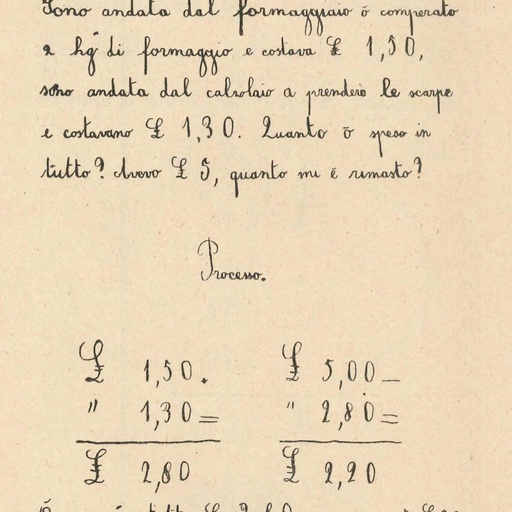 Sono andata dal formaggiaio ō comperato
2 hg di formaggio e costava £ 1,50,
sono andata dal calzolaio a prendere le scarpe
e costavano £ 1,30. Quanto ō speso in
tutto? Avevo £ 5, quanto mi é rimasto?
Processo.
£ 1,50. £ 5,00 —
" 1,30 = " 2,80 =
£ 2,80 £ 2,20